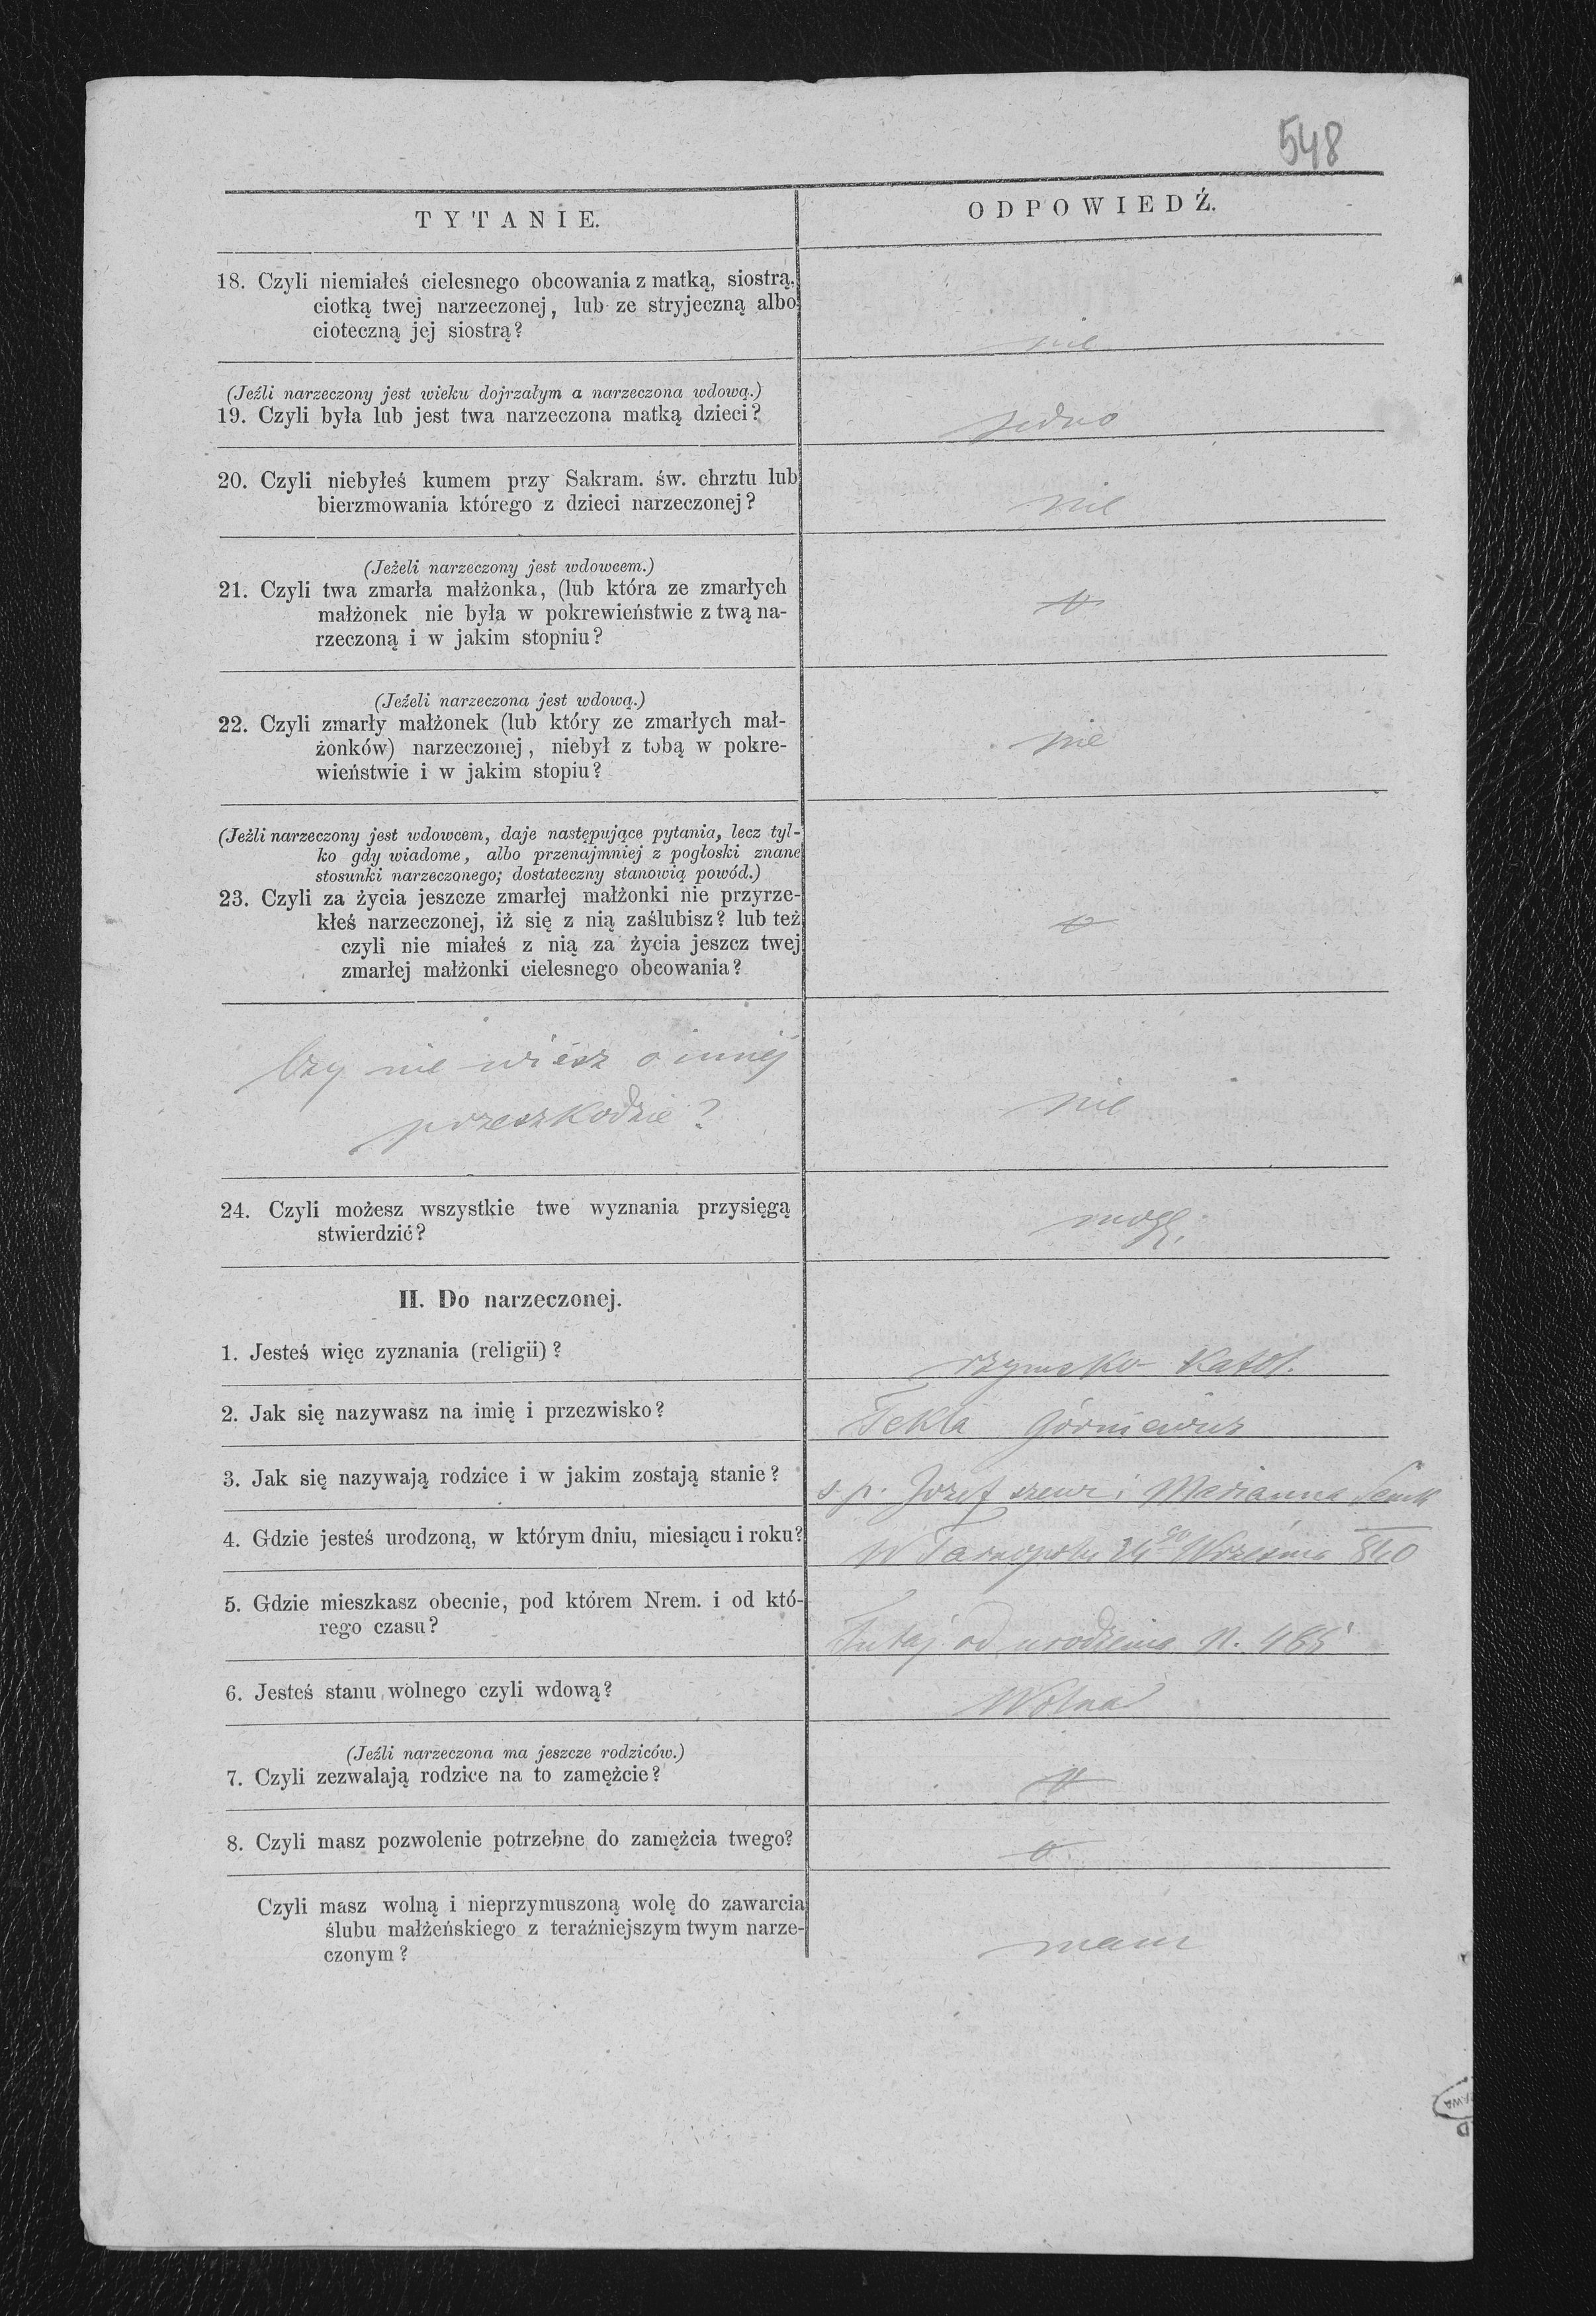 548
TYTANIE.
ODPOWIEDŹ.
18. Czyli niemiałeś cielesnego obcowania z matką, siostrą,
ciotką twej narzeczonej, lub ze stryjeczną albo
cioteczną jej siostrą?
nie
(Jeźli narzeczony jest wieku dojrzałym a narzeczona wdową.)
19. Czyli była lub jest twa narzeczona matką dzieci?
jedno
20. Czyli niebyłeś kumem przy Sakram. św. chrztu lub
bierzmowania którego z dzieci narzeczonej?
nie
(Jeżeli narzeczony jest wdowcem.)
21. Czyli twa zmarła małżonka, (lub która ze zmarłych
małżonek nie była w pokrewieństwie z twą na-
rzeczoną i w jakim stopniu?
(Jeżeli narzeczona jest wdową.)
22. Czyli zmarły małżonek (lub który ze zmarłych mał-
żonków) narzeczonej, niebył z tobą w pokre-
wieństwie i w jakim stopiu?
nie
(Jeżli narzeczony jest wdowcem, daje następujące pytania, lecz tyl-
ko gdy wiadome, albo przenajmniej z pogłoski znane
stosunki narzeczonego; dostateczny stanowią powód.)
23. Czyli za życia jeszcze zmarłej małżonki nie przyrze-
kłeś narzeczonej, iż się z nią zaślubisz? lub też
czyli nie miałeś z nią za życia jeszcz twej
zmarłej małżonki cielesnego obcowania?
Czy nie wiesz o innej
przeszkodzie?
nie
24. Czyli możesz wszystkie twe wyznania przysięgą
stwierdzić?
mogę.
II. Do narzeczonej.
1. Jesteś więc zyznania (religii)?
rzymsko katol.
2. Jak się nazywasz na imię i przezwisko?
Tekla Górniewicz
3. Jak się nazywają rodzice i w jakim zostają stanie?
s. p. Józef szewc i Marianna
4. Gdzie jesteś urodzoną, w którym dniu, miesiącu i roku?
w Tarnopolu 24go Września 840
5. Gdzie mieszkasz obecnie, pod którem Nrem. i od któ-
rego czasu?
Tutaj od urodzenia N. 485
6. Jesteś stanu wolnego czyli wdową?
Wolna
(Jeźli narzeczona ma jeszcze rodziców.)
7. Czyli zezwalają rodzice na to zamężcie?
8. Czyli masz pozwolenie potrzebne do zamężcia twego?
Czyli masz wolną i nieprzymuszoną wolę do zawarcia
ślubu małżeńskiego z teraźniejszym twym narze-
czonym?
mam